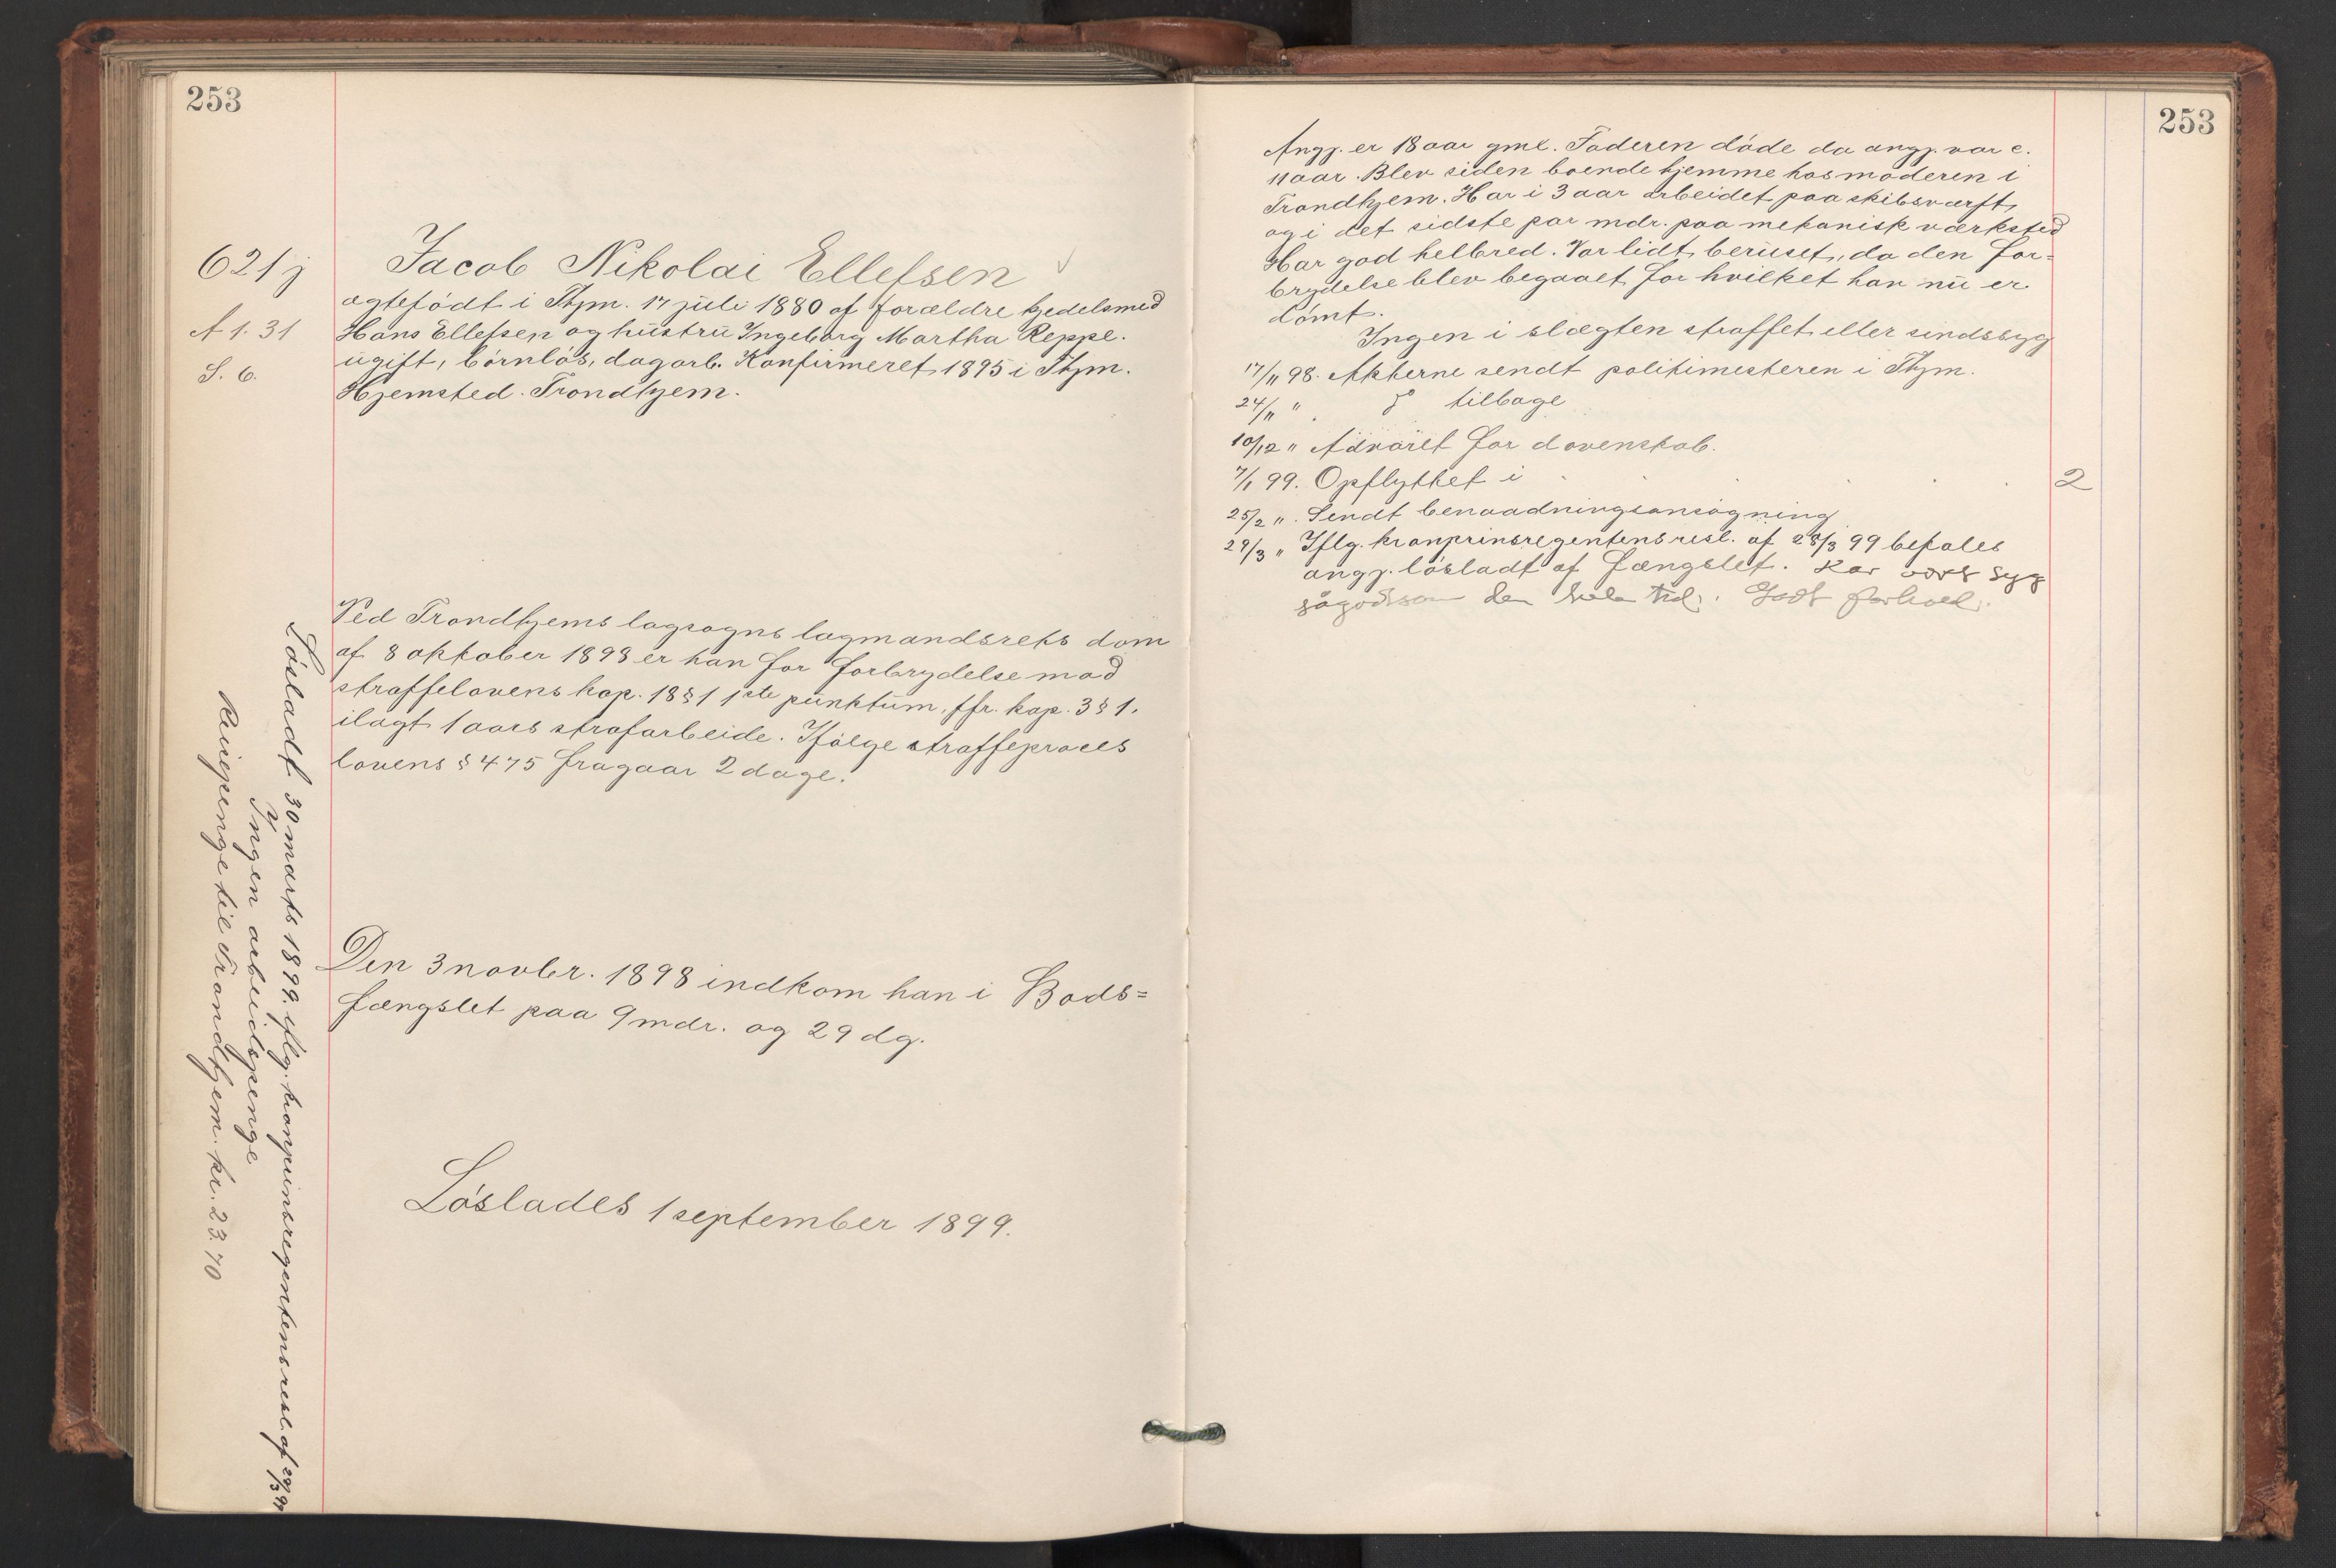 253
621 j
A 1. 31
S. 6.
Jacob Nikolai Ellefsen
ægtefødt i Thjm. 17 juli 1880 af forældre kjedelsmed
Hans Ellefsen og hustru Ingeborg Martha Reppe.
ugift, børnløs, dagarb. Konfirmeret 1895 i Thjm.
Hjemsted. Trondhjem.
Ved Trondhjems lagsogns lagmandsrets dom
af 8 oktober 1898 er han for forbrydelse mod
straffelovens kap. 18 § 1 1ste punktum, jfr. kap. 3 § 1.
ilagt 1 aars strafarbeide. Ifølge straffeproces
lovens § 475 fragaar 2 dage.
Den 3 novbr. 1898 indkom han i Bods=
fængslet paa 9 mdr. og 29 dg.
Løslades 1 september 1899.
Løsladt 30 marts 1899 iflg. kronprinsregentens resl. af 28/3 99
Ingen arbeidspenge
Reisepenge til Trondhjem. kr. 23.70
253
Angj. er 18 aar gml. Faderen døde da angj. var c.
11 aar. Blev siden boende hjemme hos moderen i
Trondhjem. Har i 3 aar arbeidet paa skibsværft,
og i det sidste par mdr. paa mekanisk værksted
Har god helbred. Var lidt beruset, da den for=
brydelse blev begaaet for hvilket han nu er
dømt.
Ingen i slægten straffet eller sindssyg
17/11 98. Akterne sendt politimesteren i Thjm.
24/11 " do tilbage
10/12 " Advaret for dovenskab.
7/1 99. Opflyttet i 2
25/2 ". Sendt benaadningsansøgning
29/3 " Iflg. kronprinsregentens resl. af 28/3 99 befales
angj. løsladt af fængslet. Har vært syg
sågodtsom den hele tid. Godt forhold.